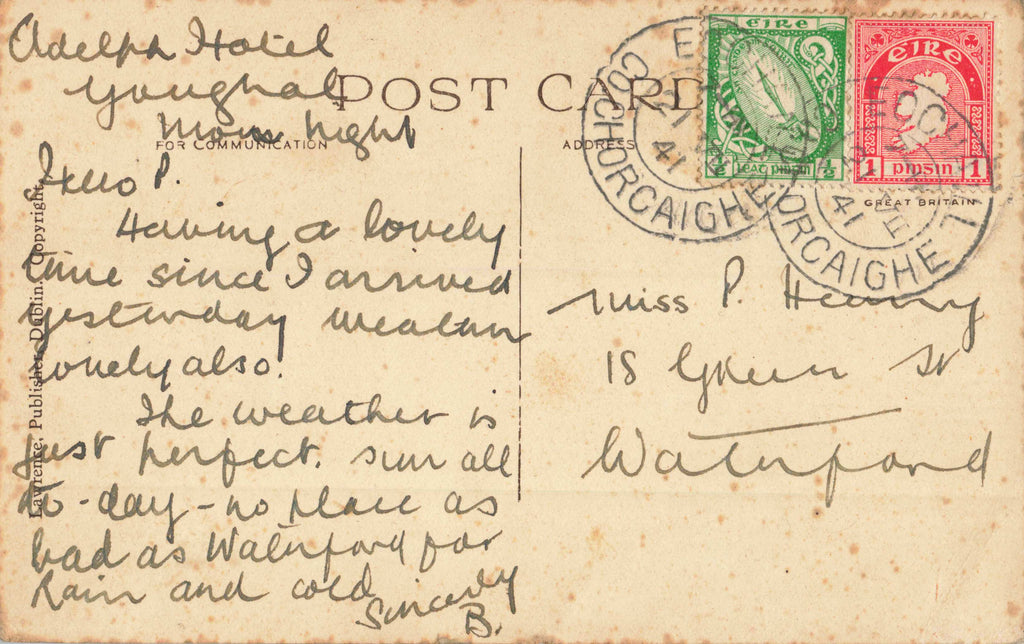 Adelphi Hotel
Youghal
Mon Night
POST CARD
FOR COMMUNICATION
ADDRESS
Hello P.
Having a lovely
time since I arrived
yesterday weather
lovely also.
The weather is
just perfect. sun all
to-day - no place as
bad as Waterford for
Rain and cold
Sincerely
B.
Lawrence, Publisher, Dublin, Copyright.
ÉIRE
½ LEAT PINGIN ½
ÉIRE
1 pinsin 1
GREAT BRITAIN
CO CHORCAIGHE
21
41
ORCAIGHE
41
Miss P. Heaney
18 Green St
Waterford